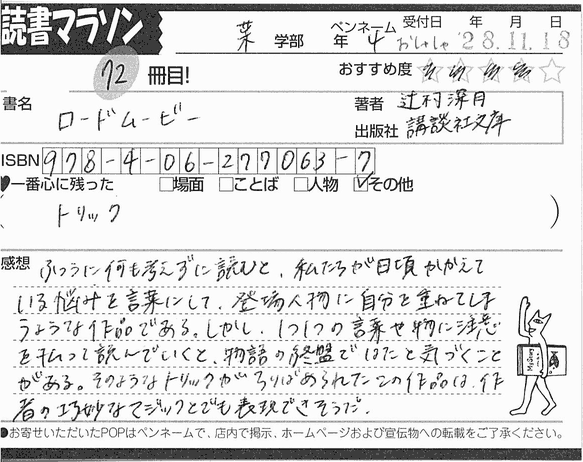 読書マラソン
薬 学部 年 4 ペンネーム おしゃしゃ 受付日 年 月 日 '28.11.18
72 冊目!
おすすめ度 ★★★★☆
書名 ロードムービー
著者 辻村深月
出版社 講談社文庫
ISBN 978-4-06-277063-7
一番心に残った □場面 □ことば □人物 ☑その他
( トリック )
感想 ふつうに何も考えずに読むと、私たちが日頃かかえて
いる悩みを言葉にして、登場人物に自分を重ねてしま
うような作品である。しかし、1つ1つの言葉や物に注意
を払って読んでいくと、物語の終盤ではたと気づくこと
がある。そのようなトリックがちりばめられたこの作品は、作
者の巧妙なマジックとでも表現できそうだ。
Mystery
●お寄せいただいたPOPはペンネームで、店内で掲示、ホームページおよび宣伝物への転載をご了承ください。